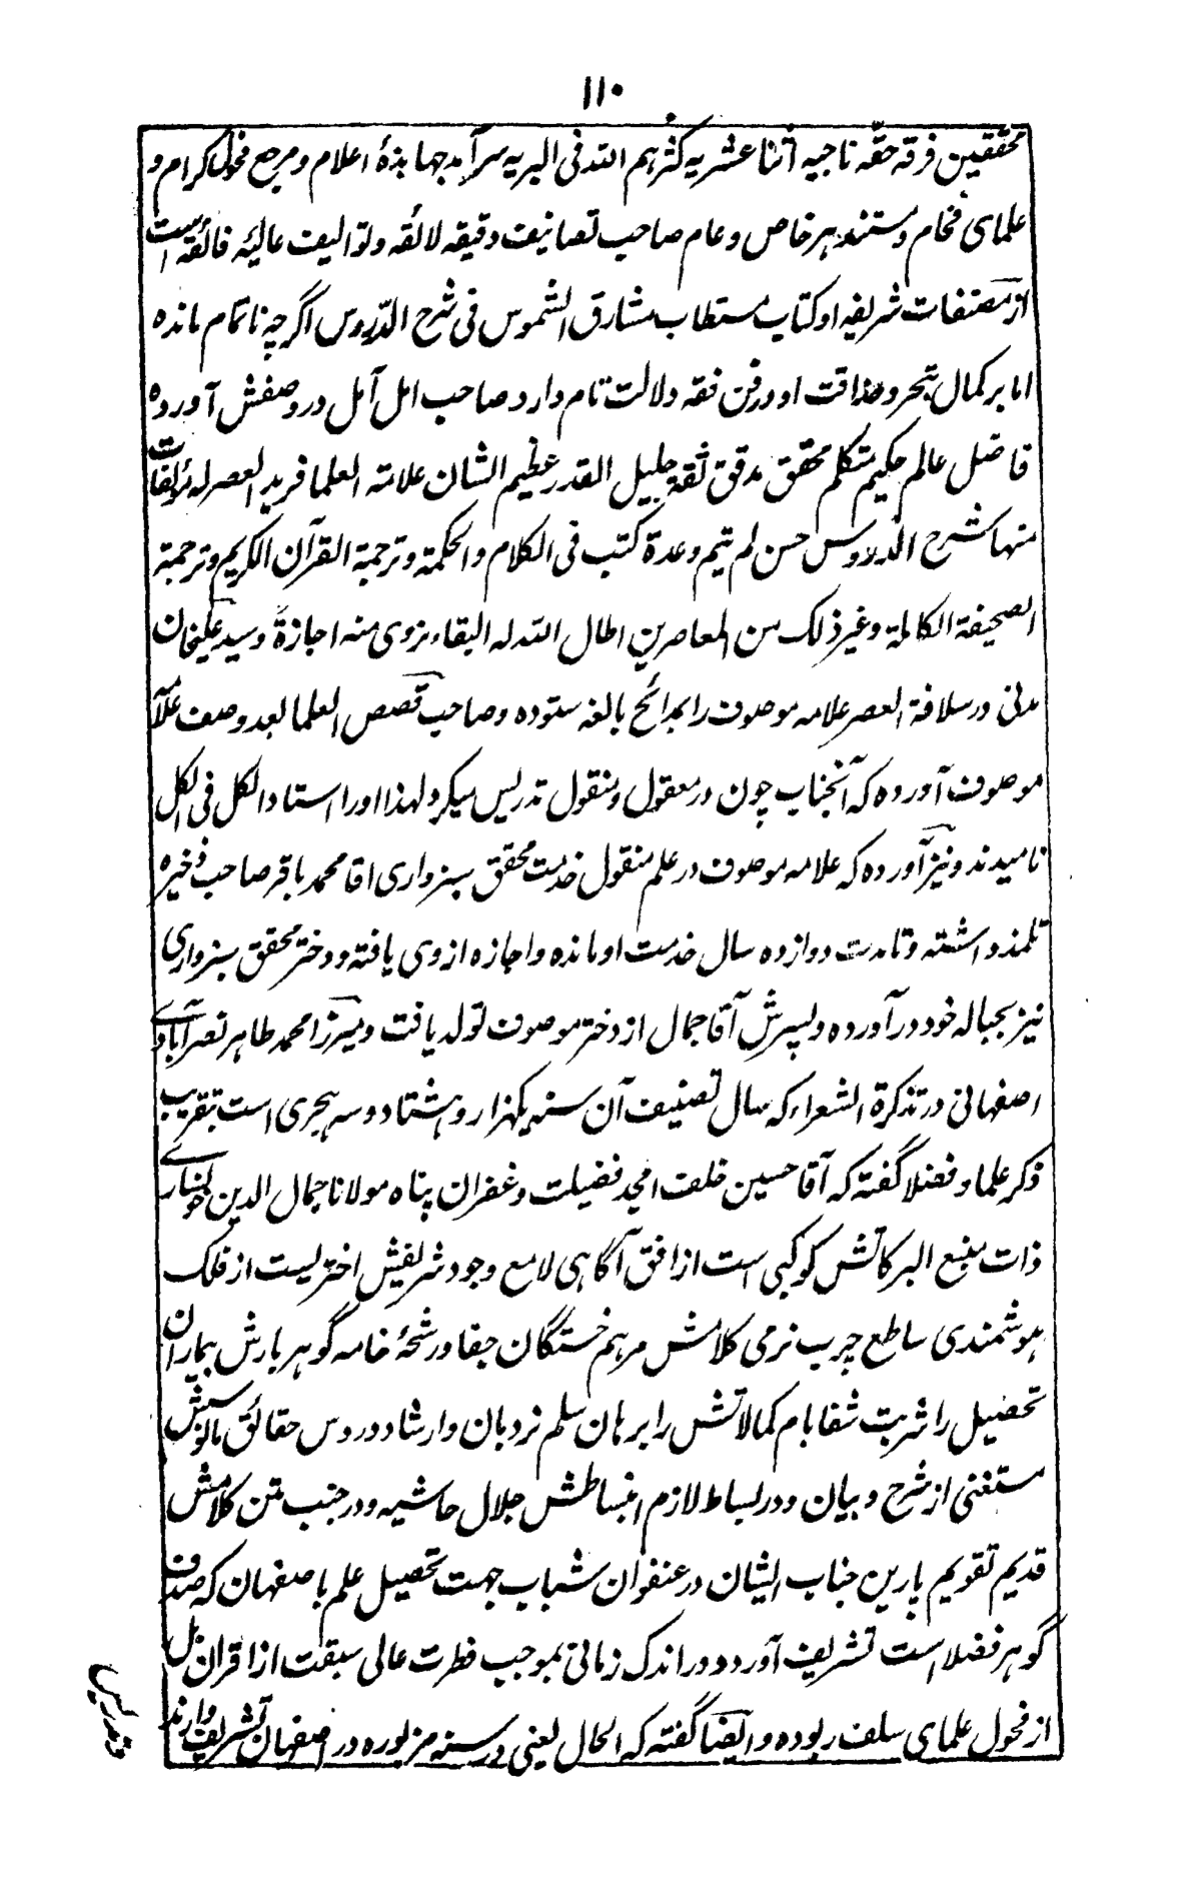 ۱۱۰
محققین فرقه حقّه ناجیه اثنا عشریه کثرهم الله فی البریه سرآمد جهابذهٔ اعلام و مرجع فحول کرام و
علمای فخام و مستند هر خاص و عام صاحب تصانیف دقیقه لائقه و توالیف عالیهٔ فائقه است
از مصنفات شریفه او کتاب مستطاب مشارق الشموس فی شرح الدّروس اگرچه ناتمام مانده
اما بر کمال تبحر و حذاقت او در فن فقه دلالت تام دارد صاحب امل آمل در وصفش آورده
فاضل عالم حکیم متکلم محقق مدقق ثقة جلیل القدر عظیم الشان علامة العلما فرید العصر له مؤلفات
منها شرح الدروس حسن لم یتم وعدة کتب فی الکلام والحکمة وترجمة القرآن الکریم وترجمة
الصحیفة الکاملة وغیر ذلک من المعاصرین اطال الله له البقاء نروی منه اجازةً وسید علیخان
مدنی در سلافة العصر علامه موصوف را بمدائح بالغه ستوده و صاحب قصص العلما بعد وصف علّامه
موصوف آورده که آنجناب چون در معقول و منقول تدریس میکرد لهذا او را استاد الکل فی الکل
نامیدند و نیز آورده که علامه موصوف در علم منقول خدمت محقق سبزواری اقا محمد باقر صاحب ذخیره
تلمذ داشته و تا مدت دوازده سال خدمت او مانده و اجازه از وی یافته و دختر محقق سبزواری
نیز بحباله خود در آورده و پسرش آقا جمال از دختر موصوف تولد یافت و میرزا محمد طاهر نصرآبادی
اصفهانی در تذکرة الشعراء که سال تصنیف آن سنه یکهزار و هشتاد و سه هجری است بتقریب
ذکر علما و فضلا گفته که آقا حسین خلف امجد فضیلت و غفران پناه مولانا جمال الدین خوانساری
ذات منبع البرکاتش کوکبی است از افق آگاهی لامع وجود شریفش اختریست از فلک
هوشمندی ساطع چرب نرمی کلامش مرهم خستگان جفا و رشحهٔ خامه گوهر بارش بیماران
تحصیل را شربت شفا بام کمالاتش را برهان سلم نردبان و ارشاد دروس حقائق مانوسش
مستغنی از شرح و بیان و در بساط لازم انبساطش جلال حاشیه و در جنب متن کلامش
قدیم تقویم پارین جناب ایشان در عنفوان شباب جهت تحصیل علم باصفهان که صدف
گوهر فضلا است تشریف آورده در اندک زمانی بموجب فطرت عالی سبقت از اقران بل
از فحول علمای سلف ربوده و ایضا گفته که الحال یعنی در سنه مزبوره در اصفهان تشریف دارند
و تدریس